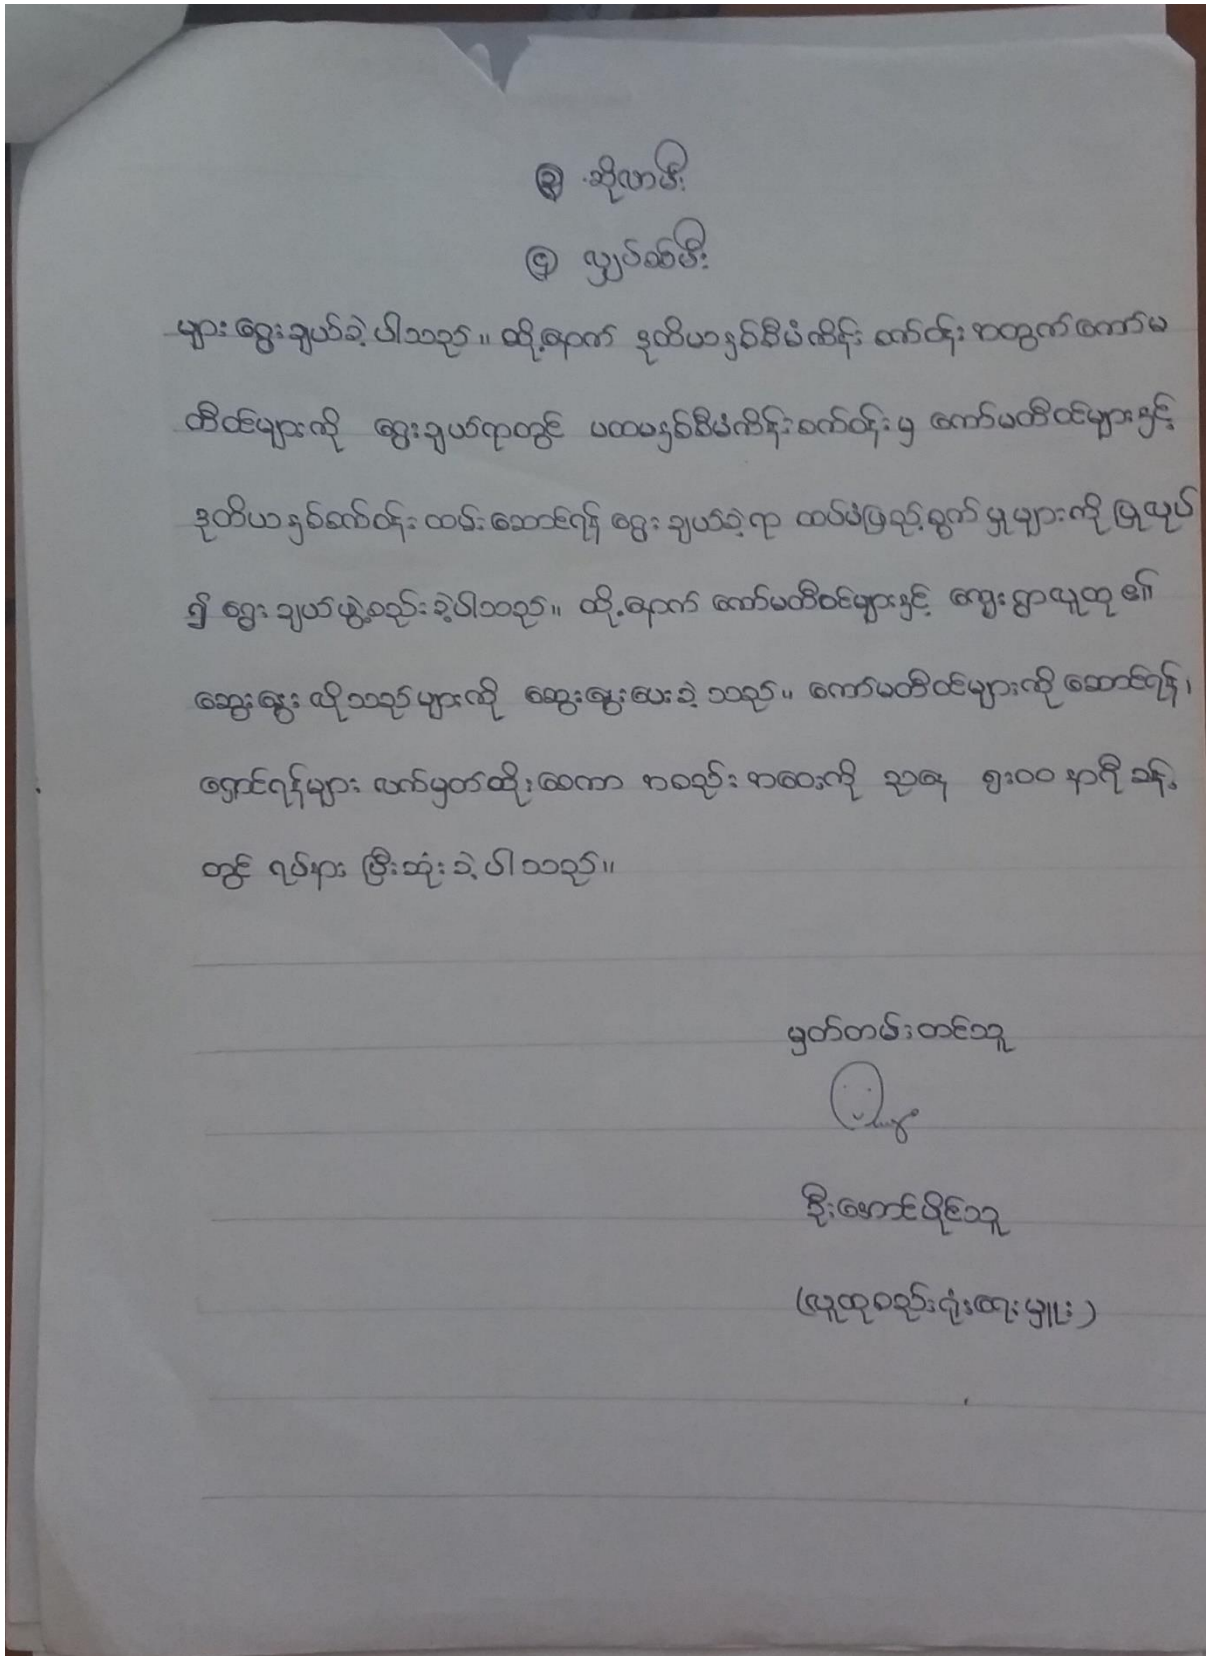 ၃ ဆိုလာမီး
၄ လျှပ်စစ်မီး
များ ရွေးချယ်ခဲ့ပါသည်။ ထို့နောက် ဒုတိယနှစ်စီမံကိန်း စက်ဝန်း အတွက် ကော်မ
တီဝင်များကို ရွေးချယ်ရာတွင် ပထမနှစ်စီမံကိန်းစက်ဝန်းမှ ကော်မတီဝင်များနှင့်
ဒုတိယနှစ်စက်ဝန်း ထမ်းဆောင်ရန် ရွေးချယ်ခဲ့ရာ ထပ်မံဖြည့်စွက်မှုများကို ပြုလုပ်
၍ ရွေးချယ်ဖွဲ့စည်းခဲ့ပါသည်။ ထို့နောက် ကော်မတီဝင်များနှင့် ကျေးရွာလူထု၏
ဆွေးနွေးလိုသည်များကို ဆွေးနွေးပေးခဲ့သည်။ ကော်မတီဝင်များကို ဆောင်ရန်၊
ရှောင်ရန်များ လက်မှတ်ထိုးစေကာ အစည်းအဝေးကို ညနေ ၅းဝဝ နာရီ ခန့်
တွင် ရပ်နား ပြီးဆုံးခဲ့ပါသည်။
မှတ်တမ်းတင်သူ
ဦးအောင်ပိုင်သူ
(လူထုစည်းရုံးရေးမှူး)